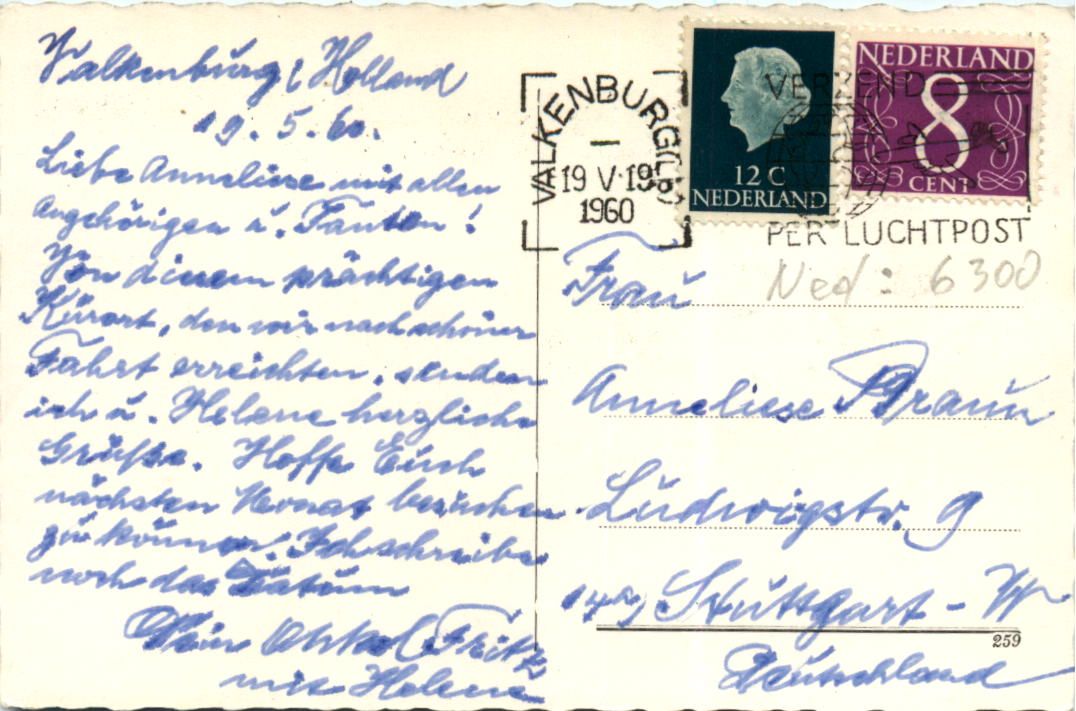 Valkenburg / Holland
19. 5. 60.
Liebe Anneliese mit allen
Angehörigen u. Tanten!
Von diesem prächtigen
Kurort, den wir nach schöner
Fahrt erreichten, senden
ich u. Helene herzliche
Grüße. Hoffe Euch
nächsten Monat besuchen
zu können. Ich schreibe
noch das Datum
Dein Onkel Fritz
mit Helene
VALKENBURG(L)
19 V·19
1960
12 C
NEDERLAND
NEDERLAND
8
CENT
VERZEND
PER LUCHTPOST
Ned: 6300
Frau
Anneliese Braun
Ludwigstr. 9
Stuttgart - W
259
Deutschland